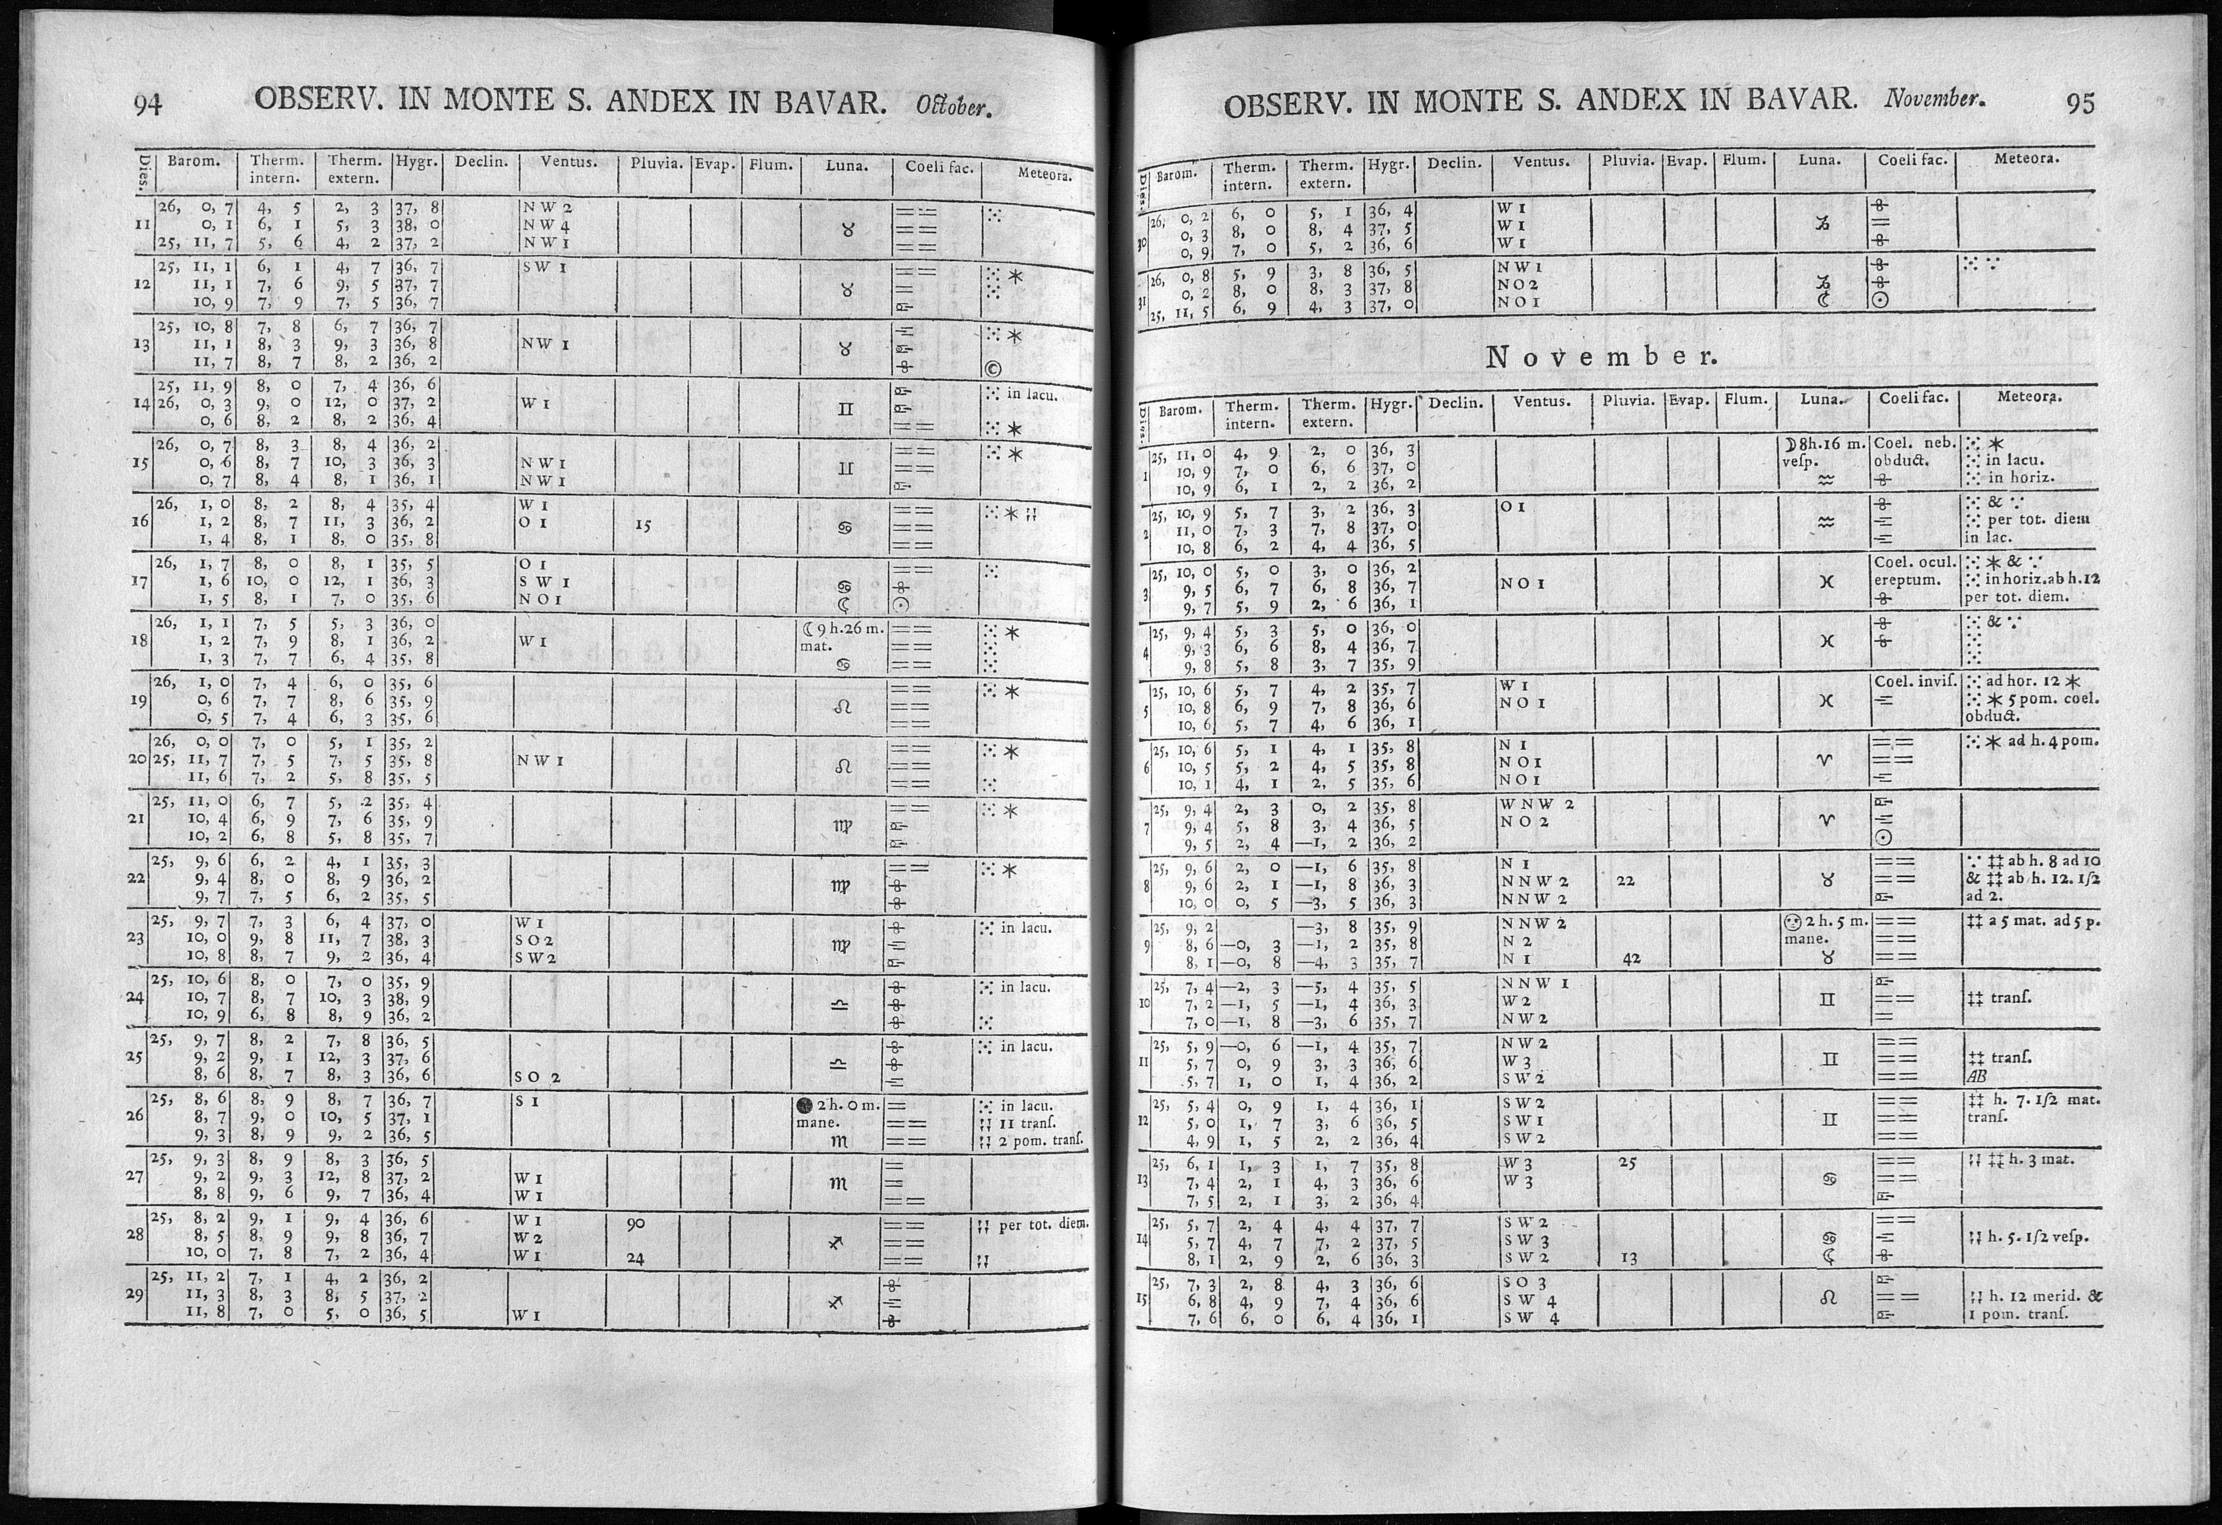 94 OBSERV. IN MONTE S. ANDEX IN BAVAR. October.
Dies. Barom. Therm. intern. Therm. extern. Hygr. Declin. Ventus. Pluvia. Evap. Flum. Luna. Coeli fac. Meteora.
26, 0, 7 4, 5 2, 3 37, 8 NW 2 == == ⁙
11 0, 1 6, 1 5, 3 38, 0 NW 4 ♉ ==
25, 11, 7 5, 6 4, 2 37, 2 NW 1 ==
25, 11, 1 6, 1 4, 7 36, 7 SW 1 == ⁙ *
12 11, 1 7, 6 9, 5 37, 7 ♉ = ⁙
10, 9 7, 9 7, 5 36, 7
25, 10, 8 7, 8 6, 7 36, 7 ⁙ *
13 11, 1 8, 3 9, 3 36, 8 NW 1 ♉
11, 7 8, 7 8, 2 36, 2 ©
25, 11, 9 8, 0 7, 4 36, 6 ⁙ in lacu.
14 26, 0, 3 9, 0 12, 0 37, 2 W 1 ♊
0, 6 8, 2 8, 2 36, 4 == ⁙ *
26, 0, 7 8, 3 8, 4 36, 2 == ⁙ *
15 0, 6 8, 7 10, 3 36, 3 NW 1 ♊ ==
0, 7 8, 4 8, 1 36, 1 NW 1
26, 1, 0 8, 2 8, 4 35, 4 W 1 ==
16 1, 2 8, 7 11, 3 36, 2 O 1 15 ♋ == ⁙ * ¦¦
1, 4 8, 1 8, 0 35, 8 ==
26, 1, 7 8, 0 8, 1 35, 5 O 1 == ⁙
17 1, 6 10, 0 12, 1 36, 3 SW 1 ♋
1, 5 8, 1 7, 0 35, 6 NO 1 ☾ ☉
26, 1, 1 7, 5 5, 3 36, 0 ☾ 9 h. 26 m. == ⁙ *
18 1, 2 7, 9 8, 1 36, 2 W 1 mat. ⁙
1, 3 7, 7 6, 4 35, 8 ♋ == ⁙
26, 1, 0 7, 4 6, 0 35, 6 == ⁙ *
19 0, 6 7, 7 8, 6 35, 9 ♌ ==
0, 5 7, 4 6, 3 35, 6 ==
26, 0, 0 7, 0 5, 1 35, 2 == ⁙ *
20 25, 11, 7 7, 5 7, 5 35, 8 NW 1 ♌ ==
11, 6 7, 2 5, 8 35, 5 == ⁙
25, 11, 0 6, 7 5, 2 35, 4 == ⁙ *
21 10, 4 6, 9 7, 6 35, 9 ♍
10, 2 6, 8 5, 8 35, 7
25, 9, 6 6, 2 4, 1 35, 3 == ⁙ *
22 9, 4 8, 0 8, 9 36, 2 ♍
9, 7 7, 5 6, 2 35, 5
25, 9, 7 7, 3 6, 4 37, 0 W 1 ⁙ in lacu.
23 10, 0 9, 8 11, 7 38, 3 SO 2 ♍
10, 8 8, 7 9, 2 36, 4 SW 2
25, 10, 6 8, 0 7, 0 35, 9 ⁙ in lacu.
24 10, 7 8, 7 10, 3 38, 9 ♎
10, 9 6, 8 8, 9 36, 2 ⁙
25, 9, 7 8, 2 7, 8 36, 5 ⁙ in lacu.
25 9, 2 9, 1 12, 3 37, 6 ♎
8, 6 8, 7 8, 3 36, 6 SO 2
25, 8, 6 8, 9 8, 7 36, 7 S 1 ● 2 h. 0 m. = ⁙ in lacu.
26 8, 7 9, 0 10, 5 37, 1 mane. == ¦¦ 11 tranſ.
9, 3 8, 9 9, 2 36, 5 ♏ == ¦¦ 2 pom. tranſ.
25, 9, 3 8, 9 8, 3 36, 5 =
27 9, 2 9, 3 12, 8 37, 2 W 1 ♏ =
8, 8 9, 6 9, 7 36, 4 W 1 ==
25, 8, 2 9, 1 9, 4 36, 6 W 1 90 == ¦¦ per tot. diem.
28 8, 5 8, 9 9, 8 36, 7 W 2 ♐ ==
10, 0 7, 8 7, 2 36, 4 W 1 24 == ¦¦
25, 11, 2 7, 1 4, 2 36, 2
29 11, 3 8, 3 8, 5 37, 2 ♐
11, 8 7, 0 5, 0 36, 5 W 1
OBSERV. IN MONTE S. ANDEX IN BAVAR. November. 95
Dies. Barom. Therm. intern. Therm. extern. Hygr. Declin. Ventus. Pluvia. Evap. Flum. Luna. Coeli fac. Meteora.
26, 0, 2 6, 0 5, 1 36, 4 W 1
30 0, 3 8, 0 8, 4 37, 5 W 1 ♑ =
0, 9 7, 0 5, 2 36, 6 W 1
26, 0, 8 5, 9 3, 8 36, 5 NW 1 ⁙ ∵
31 0, 2 8, 0 8, 3 37, 8 NO 2 ♑
25, 11, 5 6, 9 4, 3 37, 0 NO 1 ☾ ☉
November.
Dies. Barom. Therm. intern. Therm. extern. Hygr. Declin. Ventus. Pluvia. Evap. Flum. Luna. Coeli fac. Meteora.
25, 11, 0 4, 9 2, 0 36, 3 ☽ 8h. 16 m. Coel. neb. ⁙ *
1 10, 9 7, 0 6, 6 37, 0 veſp. obduct. ⁙ in lacu.
10, 9 6, 1 2, 2 36, 2 ♒ ⁙ in horiz.
25, 10, 9 5, 7 3, 2 36, 3 O 1 ⁙ & ∵
2 11, 0 7, 3 7, 8 37, 0 ♒ ⁙ per tot. diem
10, 8 6, 2 4, 4 36, 5 in lac.
25, 10, 0 5, 0 3, 0 36, 2 Coel. ocul. ⁙ * & ∵
3 9, 5 6, 7 6, 8 36, 7 NO 1 ♓ ereptum. ⁙ in horiz. ab h. 12
9, 7 5, 9 2, 6 36, 1 per tot. diem.
25, 9, 4 5, 3 5, 0 36, 0 ⁙ & ∵
4 9, 3 6, 6 8, 4 36, 7 ♓ ⁙
9, 8 5, 8 3, 7 35, 9 ⁙
25, 10, 6 5, 7 4, 2 35, 7 W 1 Coel. inviſ. ⁙ ad hor. 12 *
5 10, 8 6, 9 7, 8 36, 6 NO 1 ♓ ⁙ * 5 pom. coel.
10, 6 5, 7 4, 6 36, 1 obduct.
25, 10, 6 5, 1 4, 1 35, 8 N 1 == ⁙ * ad h. 4 pom.
6 10, 5 5, 2 4, 5 35, 8 NO 1 ♈ ==
10, 1 4, 1 2, 5 35, 6 NO 1
25, 9, 4 2, 3 0, 2 35, 8 WNW 2
7 9, 4 5, 8 3, 4 36, 5 NO 2 ♈
9, 5 2, 4 —1, 2 36, 2 ☉
25, 9, 6 2, 0 —1, 6 35, 8 N 1 == ∵ ‡‡ ab h. 8 ad 10
8 9, 6 2, 1 —1, 8 36, 3 NNW 2 22 ♉ == & ‡‡ ab h. 12. 1/2
10, 0 0, 5 —3, 5 36, 3 NNW 2 ad 2.
25, 9, 2 —3, 8 35, 9 NNW 2 2 h. 5 m. == ‡‡ a 5 mat. ad 5 p.
9 8, 6 —0, 3 —1, 2 35, 8 N 2 mane. ==
8, 1 —0, 8 —4, 3 35, 7 N 1 42 ♉ ==
25, 7, 4 —2, 3 —5, 4 35, 5 NNW 1
10 7, 2 —1, 5 —1, 4 36, 3 W 2 ♊ == ‡‡ tranſ.
7, 0 —1, 8 —3, 6 35, 7 NW 2 =
25, 5, 9 —0, 6 —1, 4 35, 7 NW 2 ==
11 5, 7 0, 9 3, 3 36, 6 W 3 ♊ == ‡‡ tranſ.
5, 7 1, 0 1, 4 36, 2 SW 2 == AB
25, 5, 4 0, 9 1, 4 36, 1 SW 2 == ‡‡ h. 7. 1/2 mat.
12 5, 0 1, 7 3, 6 36, 5 SW 1 ♊ == tranſ.
4, 9 1, 5 2, 2 36, 4 SW 2 ==
25, 6, 1 1, 3 1, 7 35, 8 W 3 25 == ¦¦ ‡‡ h. 3 mat.
13 7, 4 2, 1 4, 3 36, 6 W 3 ♋ ==
7, 5 2, 1 3, 2 36, 4
25, 5, 7 2, 4 4, 4 37, 7 SW 2 ==
14 5, 7 4, 7 7, 2 37, 5 SW 3 ♋ ¦¦ h. 5. 1/2 veſp.
8, 1 2, 9 2, 6 36, 3 SW 2 13 ☾
25, 7, 3 2, 8 4, 3 36, 6 SO 3
15 6, 8 4, 9 7, 4 36, 6 SW 4 ♌ == ¦¦ h. 12 merid. &
7, 6 6, 0 6, 4 36, 1 SW 4 1 pom. tranſ.